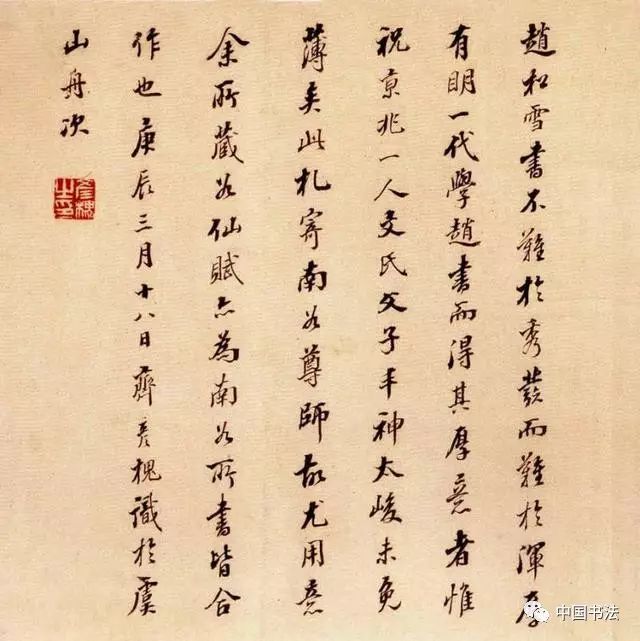 趙松雪書不難於秀發而難於渾厚
有明一代學趙書而得其厚意者惟
祝京兆一人文氏父子丰神太峻未免
薄矣此札寄南谷尊師故尤用意
余所藏谷仙賦亦為南谷所書皆合
作也庚辰三月十八日齊彥槐識於虞
山舟次
彥槐之印
中国书法